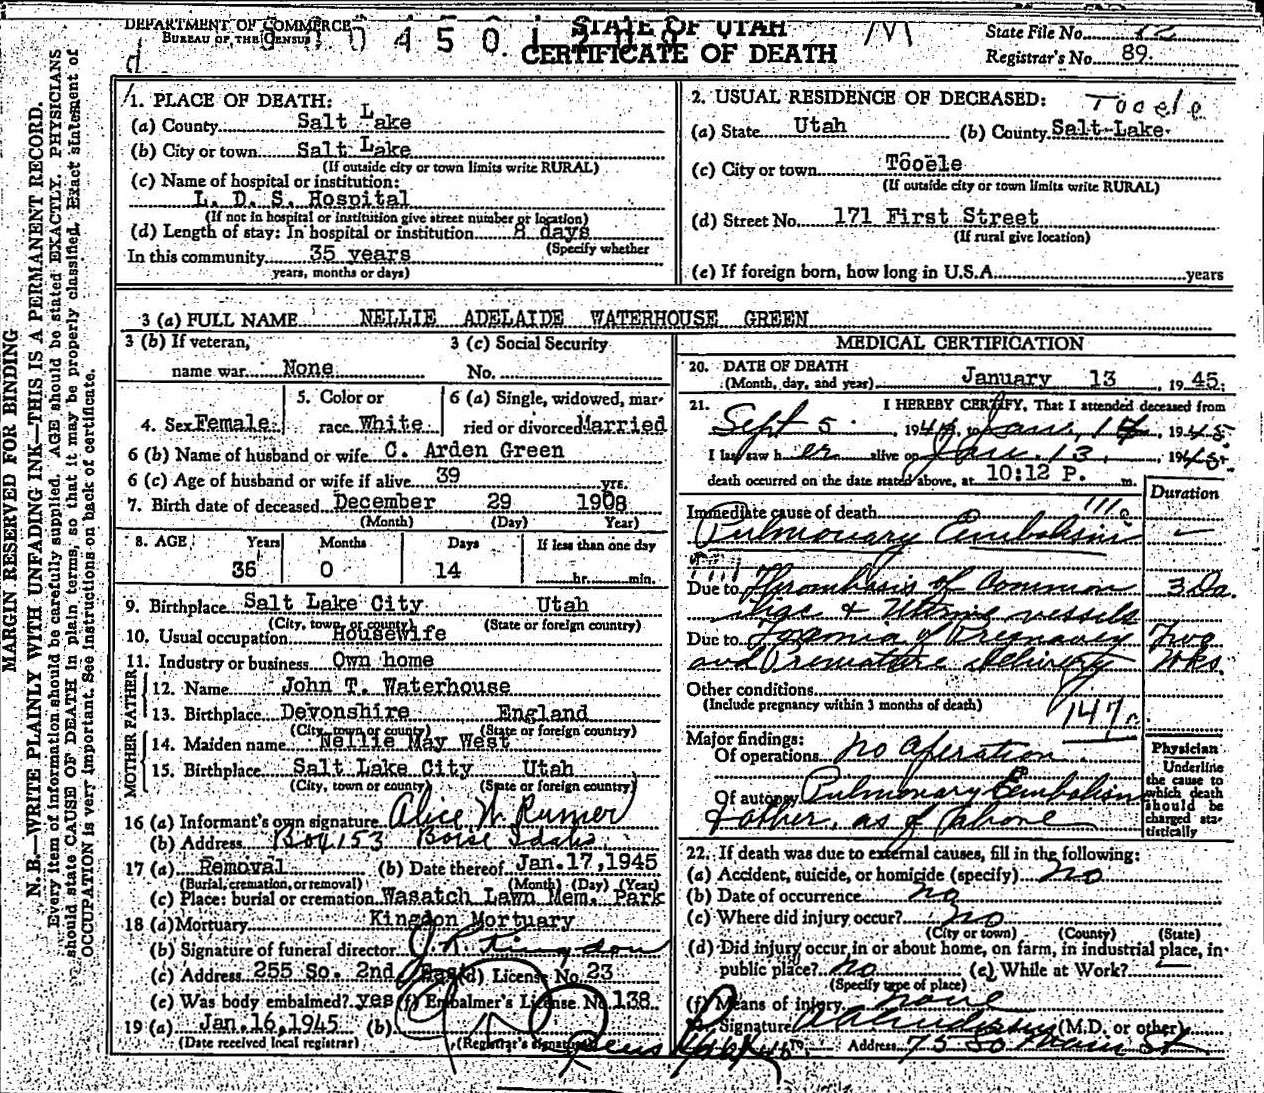 DEPARTMENT OF COMMERCE
BUREAU OF THE CENSUS
STATE OF UTAH
CERTIFICATE OF DEATH
State File No.
Registrar's No. 89.
MARGIN RESERVED FOR BINDING
N. B.—WRITE PLAINLY WITH UNFADING INK—THIS IS A PERMANENT RECORD.
Every item of information should be carefully supplied. AGE should be stated EXACTLY. PHYSICIANS
should state CAUSE OF DEATH in plain terms, so that it may be properly classified. Exact statement of
OCCUPATION is very important. See instructions on back of certificate.
1. PLACE OF DEATH:
(a) County Salt Lake
(b) City or town Salt Lake
(If outside city or town limits write RURAL)
(c) Name of hospital or institution:
L. D. S. Hospital
(If not in hospital or institution give street number or location)
(d) Length of stay: In hospital or institution 8 days
(Specify whether
In this community 35 years
years, months or days)
2. USUAL RESIDENCE OF DECEASED: Tooele
(a) State Utah (b) County Salt Lake
(c) City or town Tooele
(If outside city or town limits write RURAL)
(d) Street No. 171 First Street
(If rural give location)
(e) If foreign born, how long in U.S.A. years
3 (a) FULL NAME NELLIE ADELAIDE WATERHOUSE GREEN
3 (b) If veteran, 3 (c) Social Security
name war None No.
4. Sex Female 5. Color or race White 6 (a) Single, widowed, married or divorced Married
6 (b) Name of husband or wife C. Arden Green
6 (c) Age of husband or wife if alive 39 yrs.
7. Birth date of deceased December 29 1908
(Month) (Day) Year)
8. AGE Years Months Days If less than one day
36 0 14 hr. min.
9. Birthplace Salt Lake City Utah
(City, town, or county) (State or foreign country)
10. Usual occupation Housewife
11. Industry or business Own home
FATHER
12. Name John T. Waterhouse
13. Birthplace Devonshire England
(City, town or county) (State or foreign country)
MOTHER
14. Maiden name Nellie May West
15. Birthplace Salt Lake City Utah
(City, town or county) (State or foreign country)
16 (a) Informant's own signature Alice W. Rumer
(b) Address Box 153 Boise Idaho
17 (a) Removal (b) Date thereof Jan. 17, 1945
(Burial, cremation, or removal) (Month) (Day) (Year)
(c) Place: burial or cremation Wasatch Lawn Mem. Park
18 (a) Mortuary Kingdon Mortuary
(b) Signature of funeral director Kingdon
(c) Address 255 So. 2nd East (d) License No. 23
(e) Was body embalmed? yes (f) Embalmer's License No. 138
19 (a) Jan. 16, 1945 (b)
(Date received local registrar) (Registrar's signature)
MEDICAL CERTIFICATION
20. DATE OF DEATH
(Month, day, and year) January 13, 1945.
21. I HEREBY CERTIFY, That I attended deceased from
Sept 5, 194 to Jan. 1 , 1945.
I last saw her alive on Jan 13, 1945.
death occurred on the date stated above, at 10:12 P. m.
Duration
Immediate cause of death
Pulmonary Embolism
Due to Thrombosis of Common 3 Da.
& Uterine vessels
Due to Toxemia of Pregnancy Two
and Premature delivery Wks
Other conditions
(Include pregnancy within 3 months of death)
147
Major findings:
Of operations no operation
Of autopsy Pulmonary Embolism
& other, as of above
Physician
Underline
the cause to
which death
should be
charged statistically
22. If death was due to external causes, fill in the following:
(a) Accident, suicide, or homicide (specify) no
(b) Date of occurrence no
(c) Where did injury occur? no
(City or town) (County) (State)
(d) Did injury occur in or about home, on farm, in industrial place, in
public place? no (e) While at Work? —
(Specify type of place)
(f) Means of injury none
Signature (M.D. or other)
Address 75 So Main St